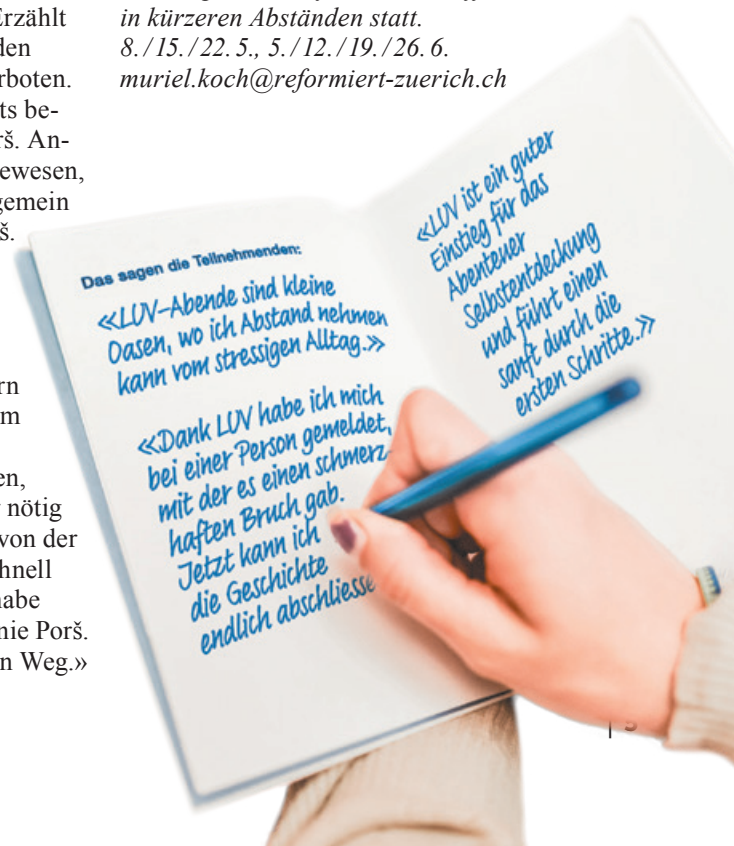 Erzählt
den
rboten.
ts be-
rš. An-
ewesen,
gemein
š.
rn
m
en,
nötig
von der
hnell
habe
nie Porš.
n Weg.»
in kürzeren Abständen statt.
8./15./22. 5., 5./12./19./26. 6.
muriel.koch@reformiert-zuerich.ch
Das sagen die Teilnehmenden:
«LUV-Abende sind kleine
Oasen, wo ich Abstand nehmen
kann vom stressigen Alltag.»
«Dank LUV habe ich mich
bei einer Person gemeldet,
mit der es einen schmerz-
haften Bruch gab.
Jetzt kann ich
die Geschichte
endlich abschliesse
«LUV ist ein guter
Einstieg für das
Abenteuer
Selbstentdeckung
und führt einen
sanft durch die
ersten Schritte.»